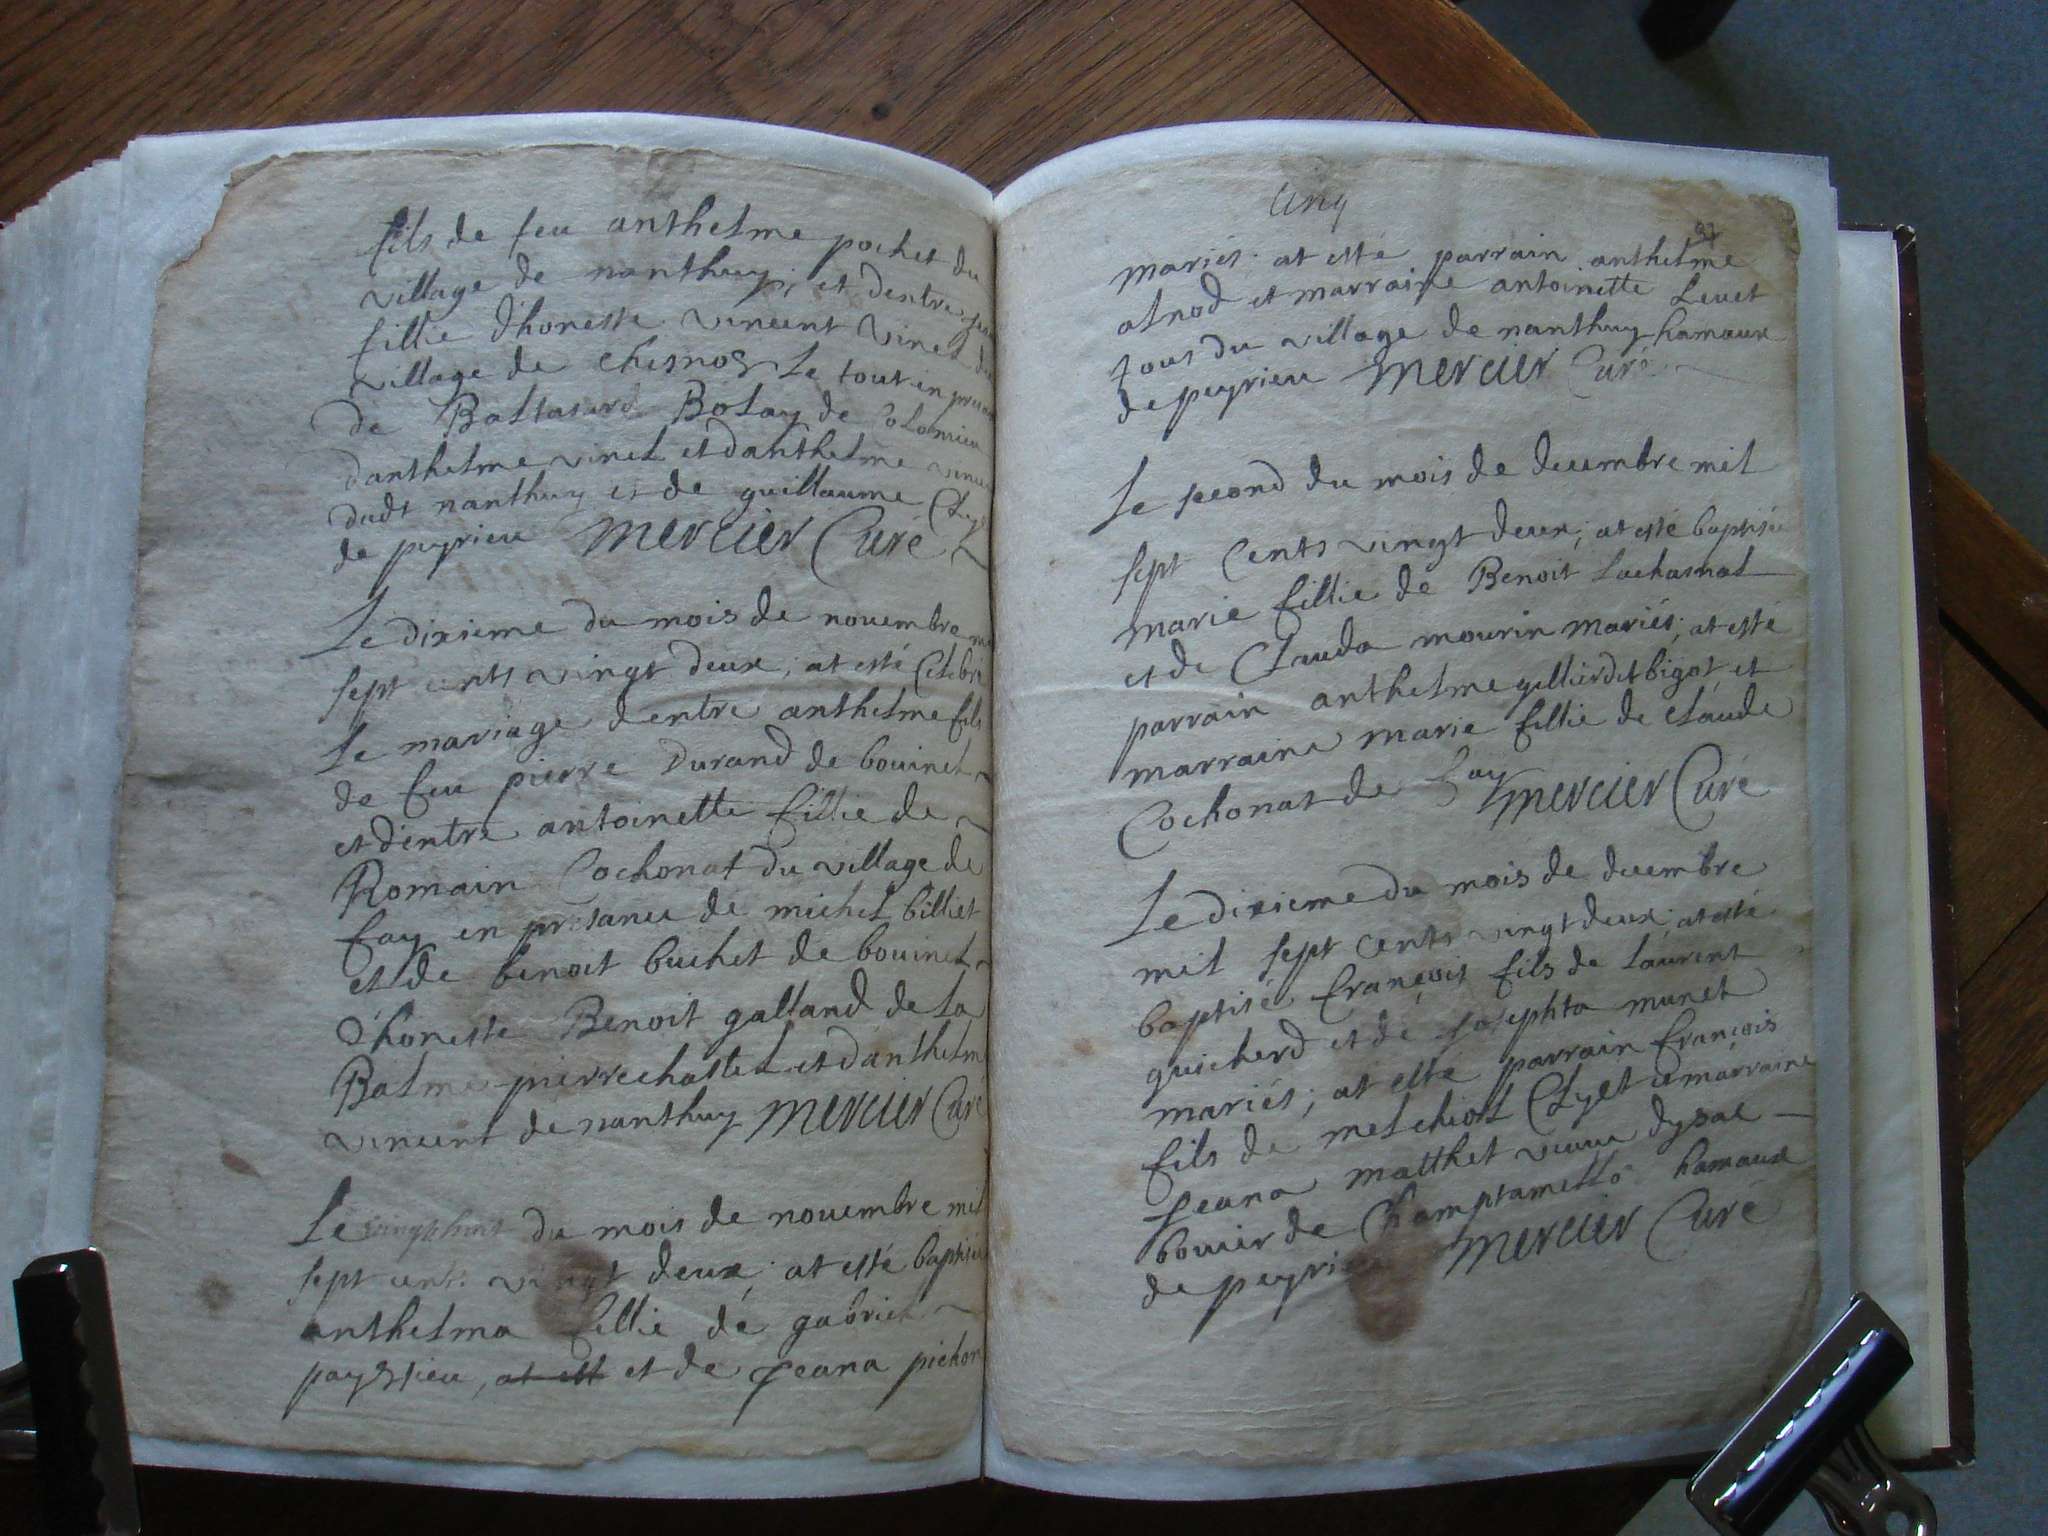 fils de feu anthelme pochet du
village de nanthuy, et dentre
fillie d'honeste vincent vinet du
village de chesnos Le tout en presan
de Baltasard Bolay de Colomieu
danthelme vinet et danthelme vincen
dudt nanthuy et de guillaume Clyet
de peyrieu mercier Curé
Le dixieme du mois de nouembre mil
sept cents vingt deux; at esté Celebré
Le mariage dentre anthelme fils
de feu pierre Durand de bouinet
et d'entre antoinette fillie de
Romain Cochonat du village de
fay en presance de michel billiet
et de benoit buchet de bouinet
d'honeste Benoit galland de La
Balme pierre chastel et d'anthelme
vincent de nanthuy mercier Curé
Le du mois de nouembre mil
sept cents vingt deux; at esté baptisée
anthelma fillie de gabriel
payssieu, at est et de Jeana pichon
Cinq
mariés; at esté parrain anthelme
alnod et marraine antoinette Leuet
tous du village de nanthuy hamaux
de peyrieu mercier Curé
Le second du mois de decembre mil
sept Cents vingt deux; at esté baptisée
marie fillie de Benoit Lachasnal
et de Clauda mourin mariés; at esté
parrain anthelme gillier dit bigot et
marraine marie fillie de claude
Cochonat de fay mercier Curé
Le dixieme du mois de decembre
mil sept cents vingt deux; at esté
baptisé françois fils de Laurent
guicherd et de Josephta munet
mariés; at esté parrain françois
fils de melchiot Clyet et marraine
Jeana matthet veuue dysac
bouuier de Champtamello hamaux
de peyrieu mercier Curé